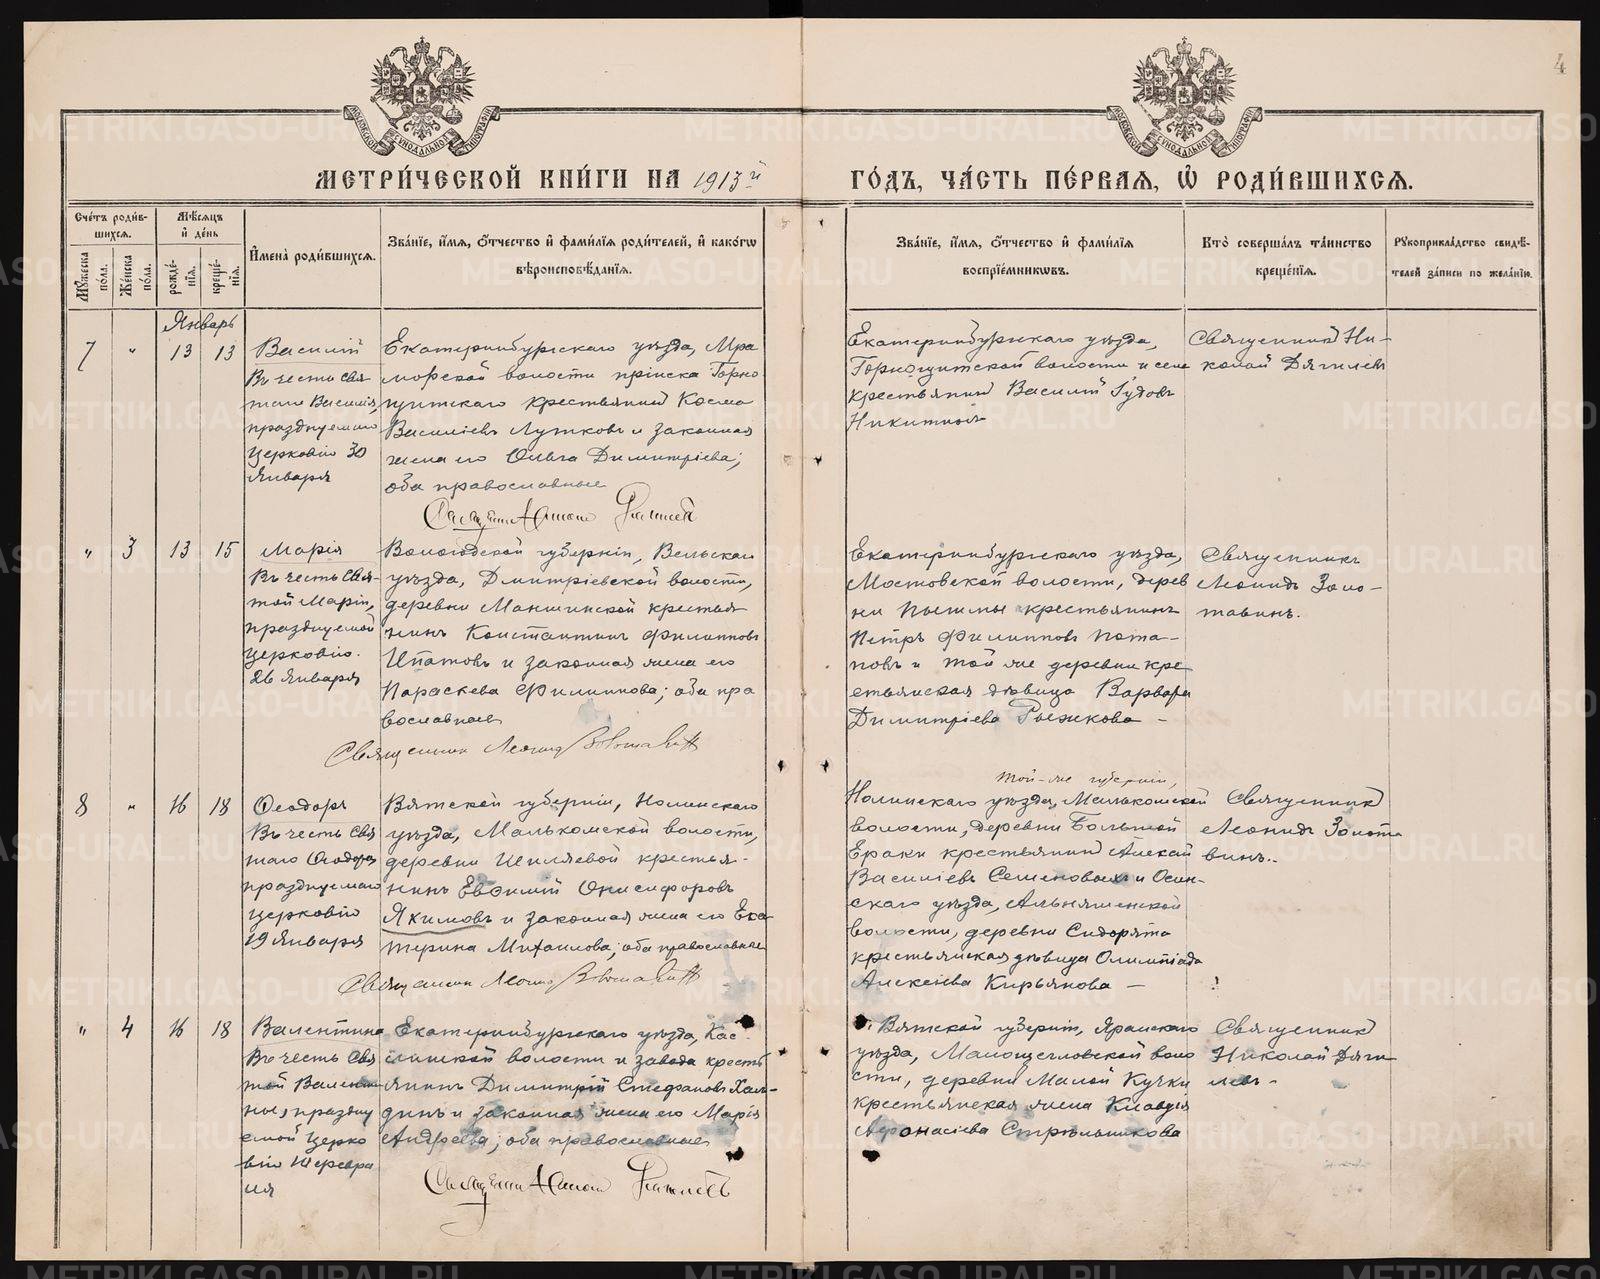 4
МЕТРИ́ЧЕСКОЙ КНИ́ГИ НА 1913й
ГО́ДЪ, ЧА́СТЬ ПЕ́РВАЯ, Ѡ РОДИ́ВШИХСЯ.
Сче́тъ роди́в-
шихся.
Му́жеска по́ла.
Же́нска по́ла.
Мѣ́сяцъ
и де́нь
рожде́-
нїя.
креще́-
нїя.
Имена̀ роди́вшихся.
Зва́нїе, и́мя, о́тчество и фами́лїя роди́телей, и како́гѡ
вѣроисповѣ́данїя.
Зва́нїе, и́мя, о́тчество и фами́лїя
воспрїе́мникѡвъ.
Кто̀ соверша́лъ та́инство
креще́нїя.
Рукоприкла́дство свидѣ́-
телей за́писи по жела́нїю.
Январь
7 " 13 13
Василій
Въ честь Свя
таго Василія,
празднуемаго
Церковію 30
Января
Екатеринбургскаго уѣзда, Мра
морской волости пріиска Горно
щитскаго крестьянинъ Косма
Василіевъ Лутковъ и законная
жена его Ольга Димитріева;
оба православные
Екатеринбургскаго уѣзда,
Горнощитской волости и села
крестьянинъ Василій Гудовъ
Никитинъ
Священникъ Ни-
колай Дягилевъ
" 3 13 15
Марія
Въ честь Свя-
той Маріи,
празднуемой
Церковію
26 Января
Вологодской губерніи, Вельскаго
уѣзда, Дмитріевской волости,
деревни Маншинской крестья
нинъ Константинъ Филипповъ
Ипатовъ и законная жена его
Параскева Филиппова; оба пра
вославные
Священникъ Леонид Золотавинъ
Екатеринбургскаго уѣзда,
Мостовской волости, дерев
ни Пышмы крестьянинъ
Петръ Филипповъ Пота-
повъ и той же деревни кре
стьянская дѣвица Варвара
Димитріева Рыжкова –
Священникъ
Леонидъ Золо-
тавинъ.
8 " 16 18
Ѳеодоръ
Въ честь Свя
таго Ѳеодора
празднуемаго
Церковію
19 Января
Вятской губерніи, Нолинскаго
уѣзда, Малькомской волости,
деревни Шиляевой крестья-
нинъ Евѳимій Онисифоровъ
Якимовъ и законная жена его Ека
терина Михаилова; оба православные
Священникъ Леонид Золотавинъ
той-же губерніи,
Нолинскаго уѣзда, Малькомской
волости, деревни Большой
Ераки крестьянинъ Алексей
Василіевъ Семеновыхъ и Осин-
скаго уѣзда, Альняшенской
волости, деревни Сидорята
крестьянская дѣвица Олимпіада
Алексіева Кирьянова –
Священникъ
Леонидъ Золота
винъ.
" 4 16 18
Валентина
Въ честь Свя
той Валенти
ны, праздну
емой Церко
вію 10 Февра
ля
Екатеринбургскаго уѣзда, Кас-
линской волости и завода кресть
янинъ Димитрій Стефановъ Хал-
динъ и законная жена его Марія
Андреева; оба православные
Вятской губерніи, Яранскаго
уѣзда, Малощегловской воло
сти, деревни Малой Кучки
крестьянская жена Клавдія
Аѳонасіева Стрѣльникова
Священникъ
Николай Дяги
левъ.